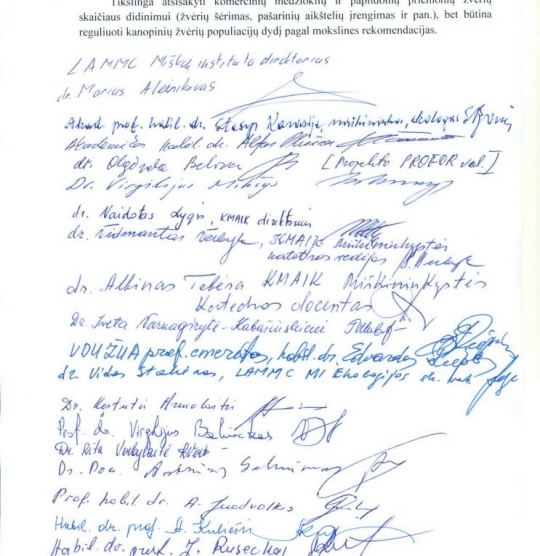 Tikslinga atsisakyti komercinių medžioklių ir papildomų priemonių žvėrių
skaičiaus didinimui (žvėrių šėrimas, pašarinių aikštelių įrengimas ir pan.), bet būtina
reguliuoti kanopinių žvėrių populiacijų dydį pagal mokslines rekomendacijas.
LAMMC Miškų instituto direktorius
dr. Marius Aleinikovas
Akad. prof. habil. dr. Stasys Karazija, miškininkas, ekologas
Akademikas habil. dr.
dr. Olgirda Belova [Projekto PROFOR vad.]
Dr. Virgilijus Mikšys
dr. Vaidotas Lygis, KMAIK direktorius
dr. Vidmantas Verbyla, KMAIK Miškininkystės
katedros vedėjas
dr. Albinas Tebėra KMAIK Miškininkystės
Katedros docentas
Dr. Iveta Varnagirytė-Kabašinskienė
VDU ŽŪA prof. emeritas, habil. dr. Edvardas
dr. Vidas Stakėnas, LAMMC MI Ekologijos sk.
Dr. Kęstutis Armolaitis
Prof. dr. Virgilijus Baliuckas
Dr. Rita Verbylaitė
Dr. Doc.
Prof. habil. dr. A. Juodvalkis
Habil. dr. prof.
Habil. dr. prof. L.